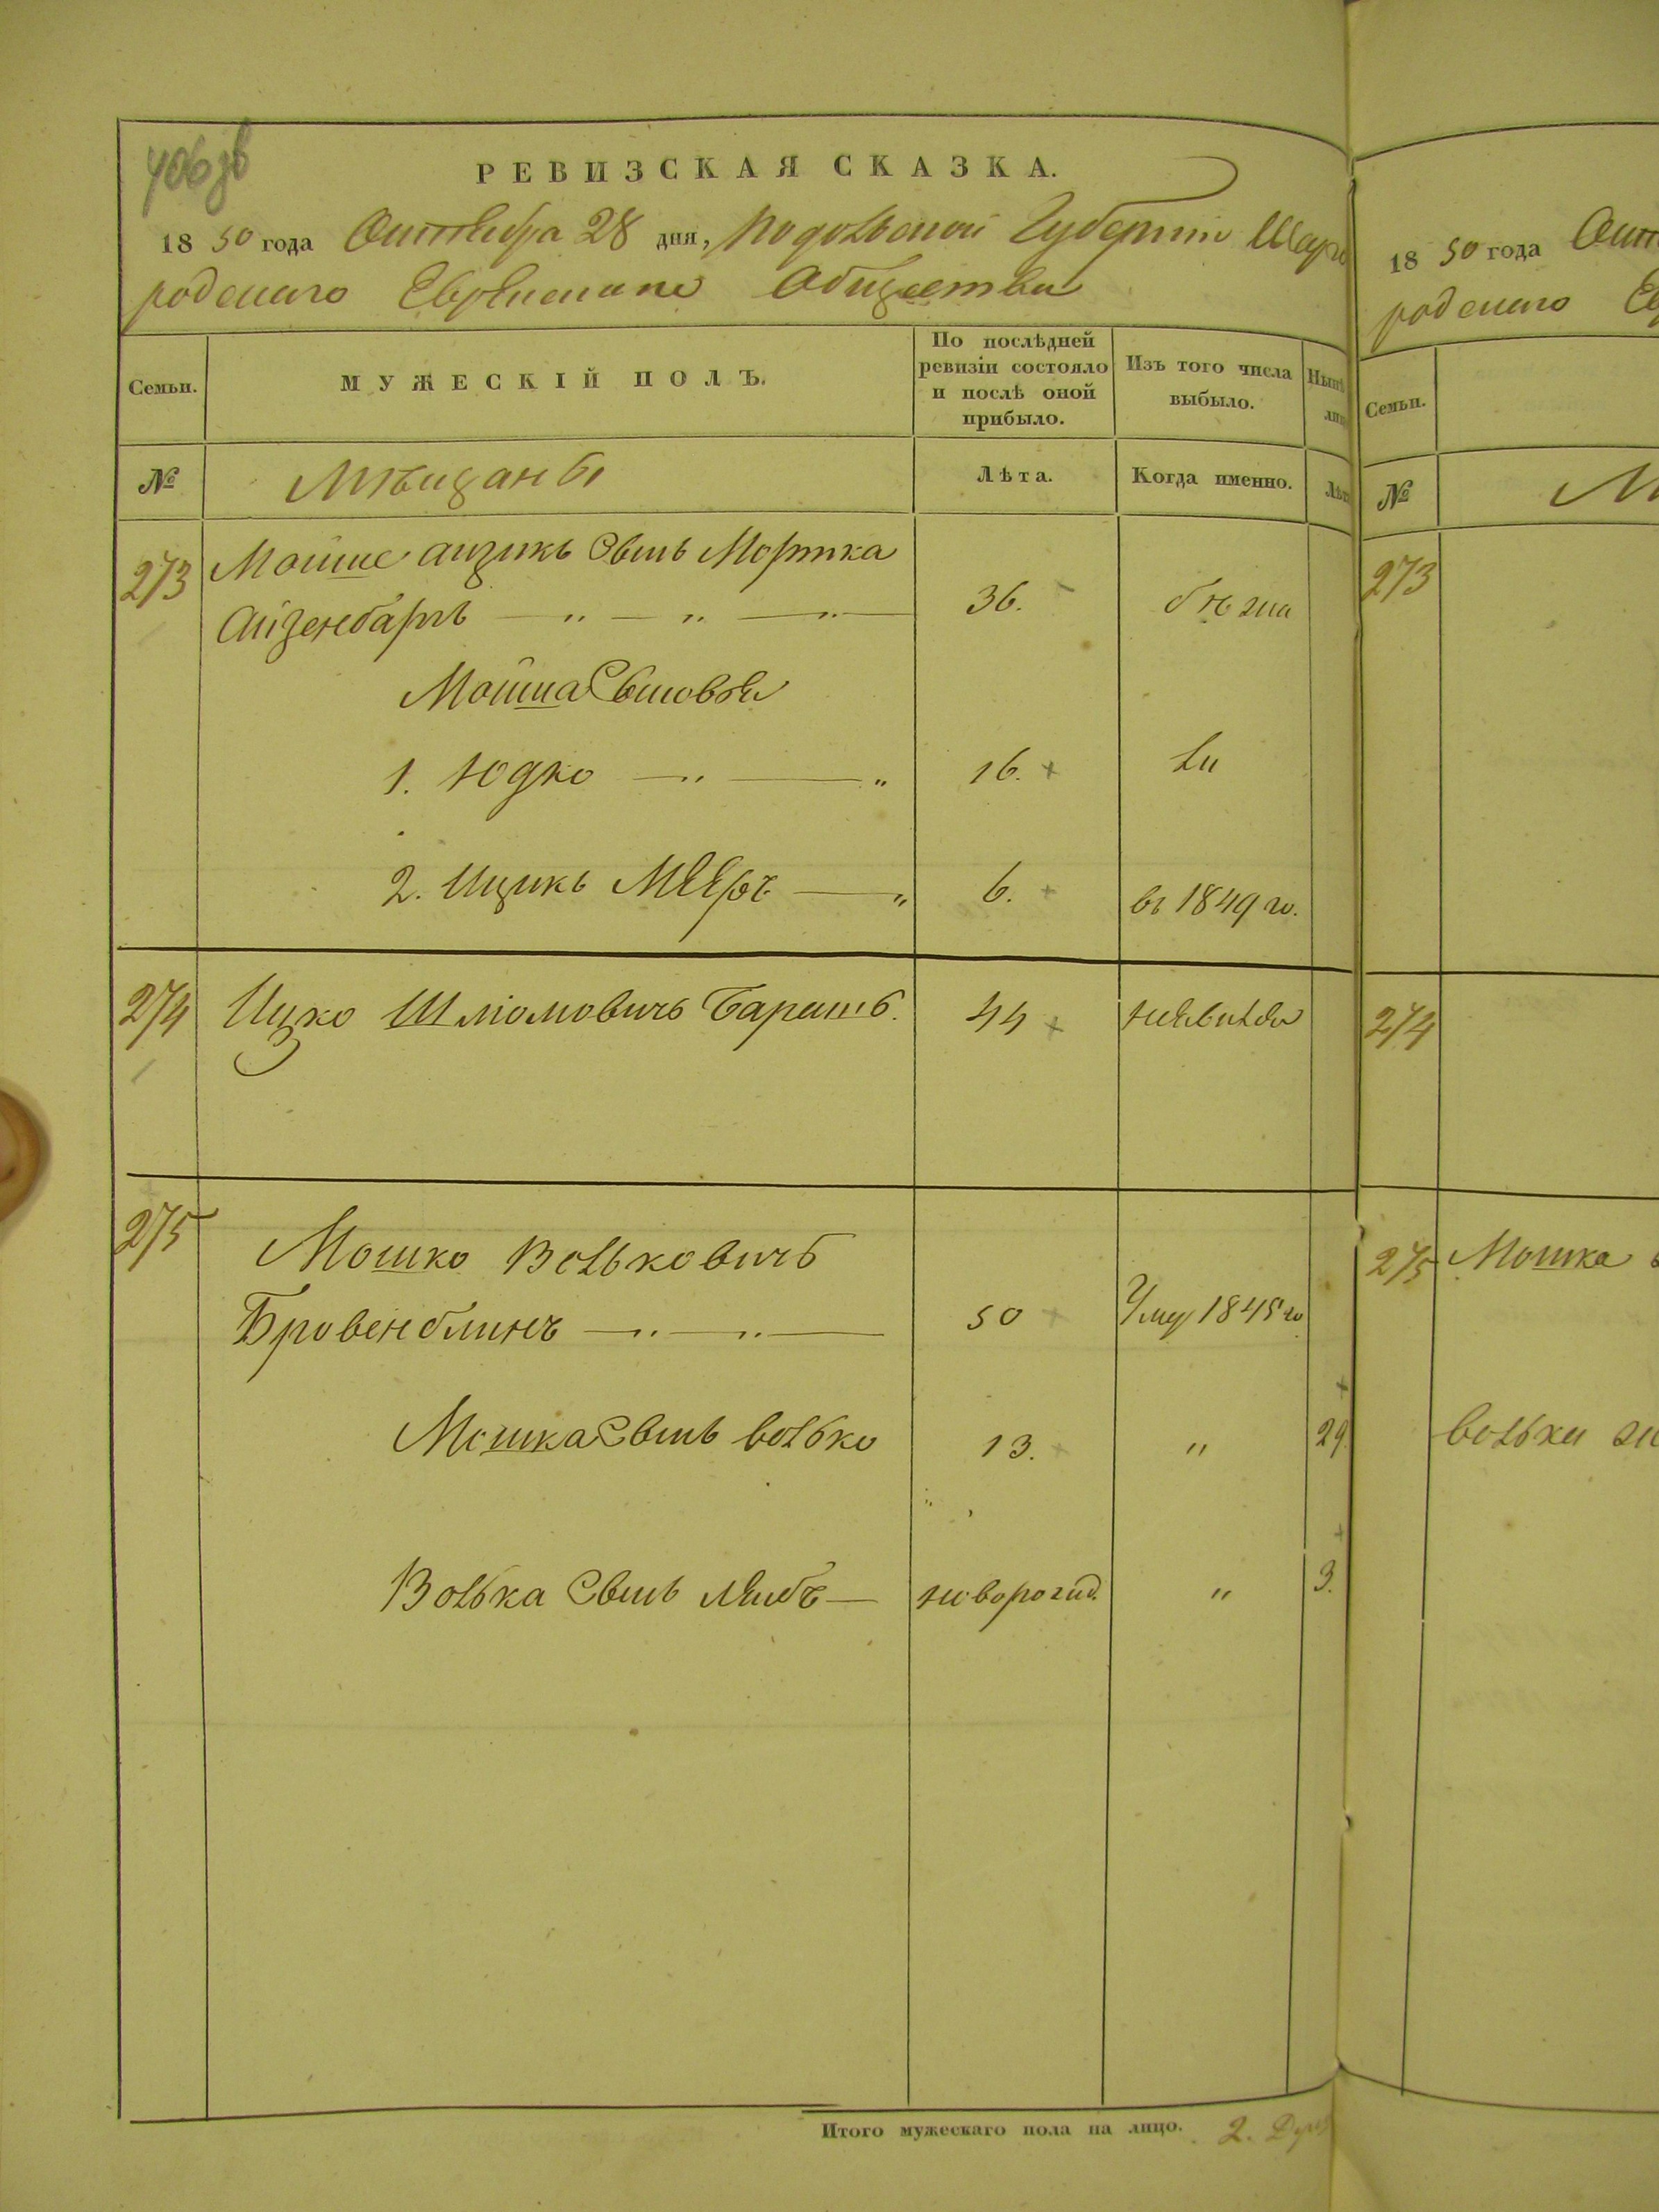 406 зв
РЕВИЗСКАЯ СКАЗКА.
1850 года Октября 28 дня, Подольской Губерніи Шарго
родскаго Еврейскаго Общества
Семьи.
МУЖЕСКІЙ ПОЛЪ.
По послѣдней
ревизіи состояло
и послѣ оной
прибыло.
Изъ того числа
выбыло.
Нынѣ
ли
№
Мѣщанѣ
Лѣта.
Когда именно.
Лѣт
273
Мойше аизикъ Сынъ Мортка
Айзенбаргъ 36. бѣжа
Мойша Сыновья
1. Юдко 16. ли
2. Ицикъ Мееръ 6. въ 1849 го.
274 Ицко Шліомовичъ Барашъ. 44 неявился
275 Мошко Вольковичъ
Бровенблинъ 50 Умер 1845 го
Мошка Сынъ волько 13. " 29.
Волька Сынъ лейбъ новорожд. " 3.
Итого мужескаго пола на лицо. 2. Душ
1850 года Окт
родскаго Ев
Семьи.
№ М
273
274
275 Мошка
вольки жо